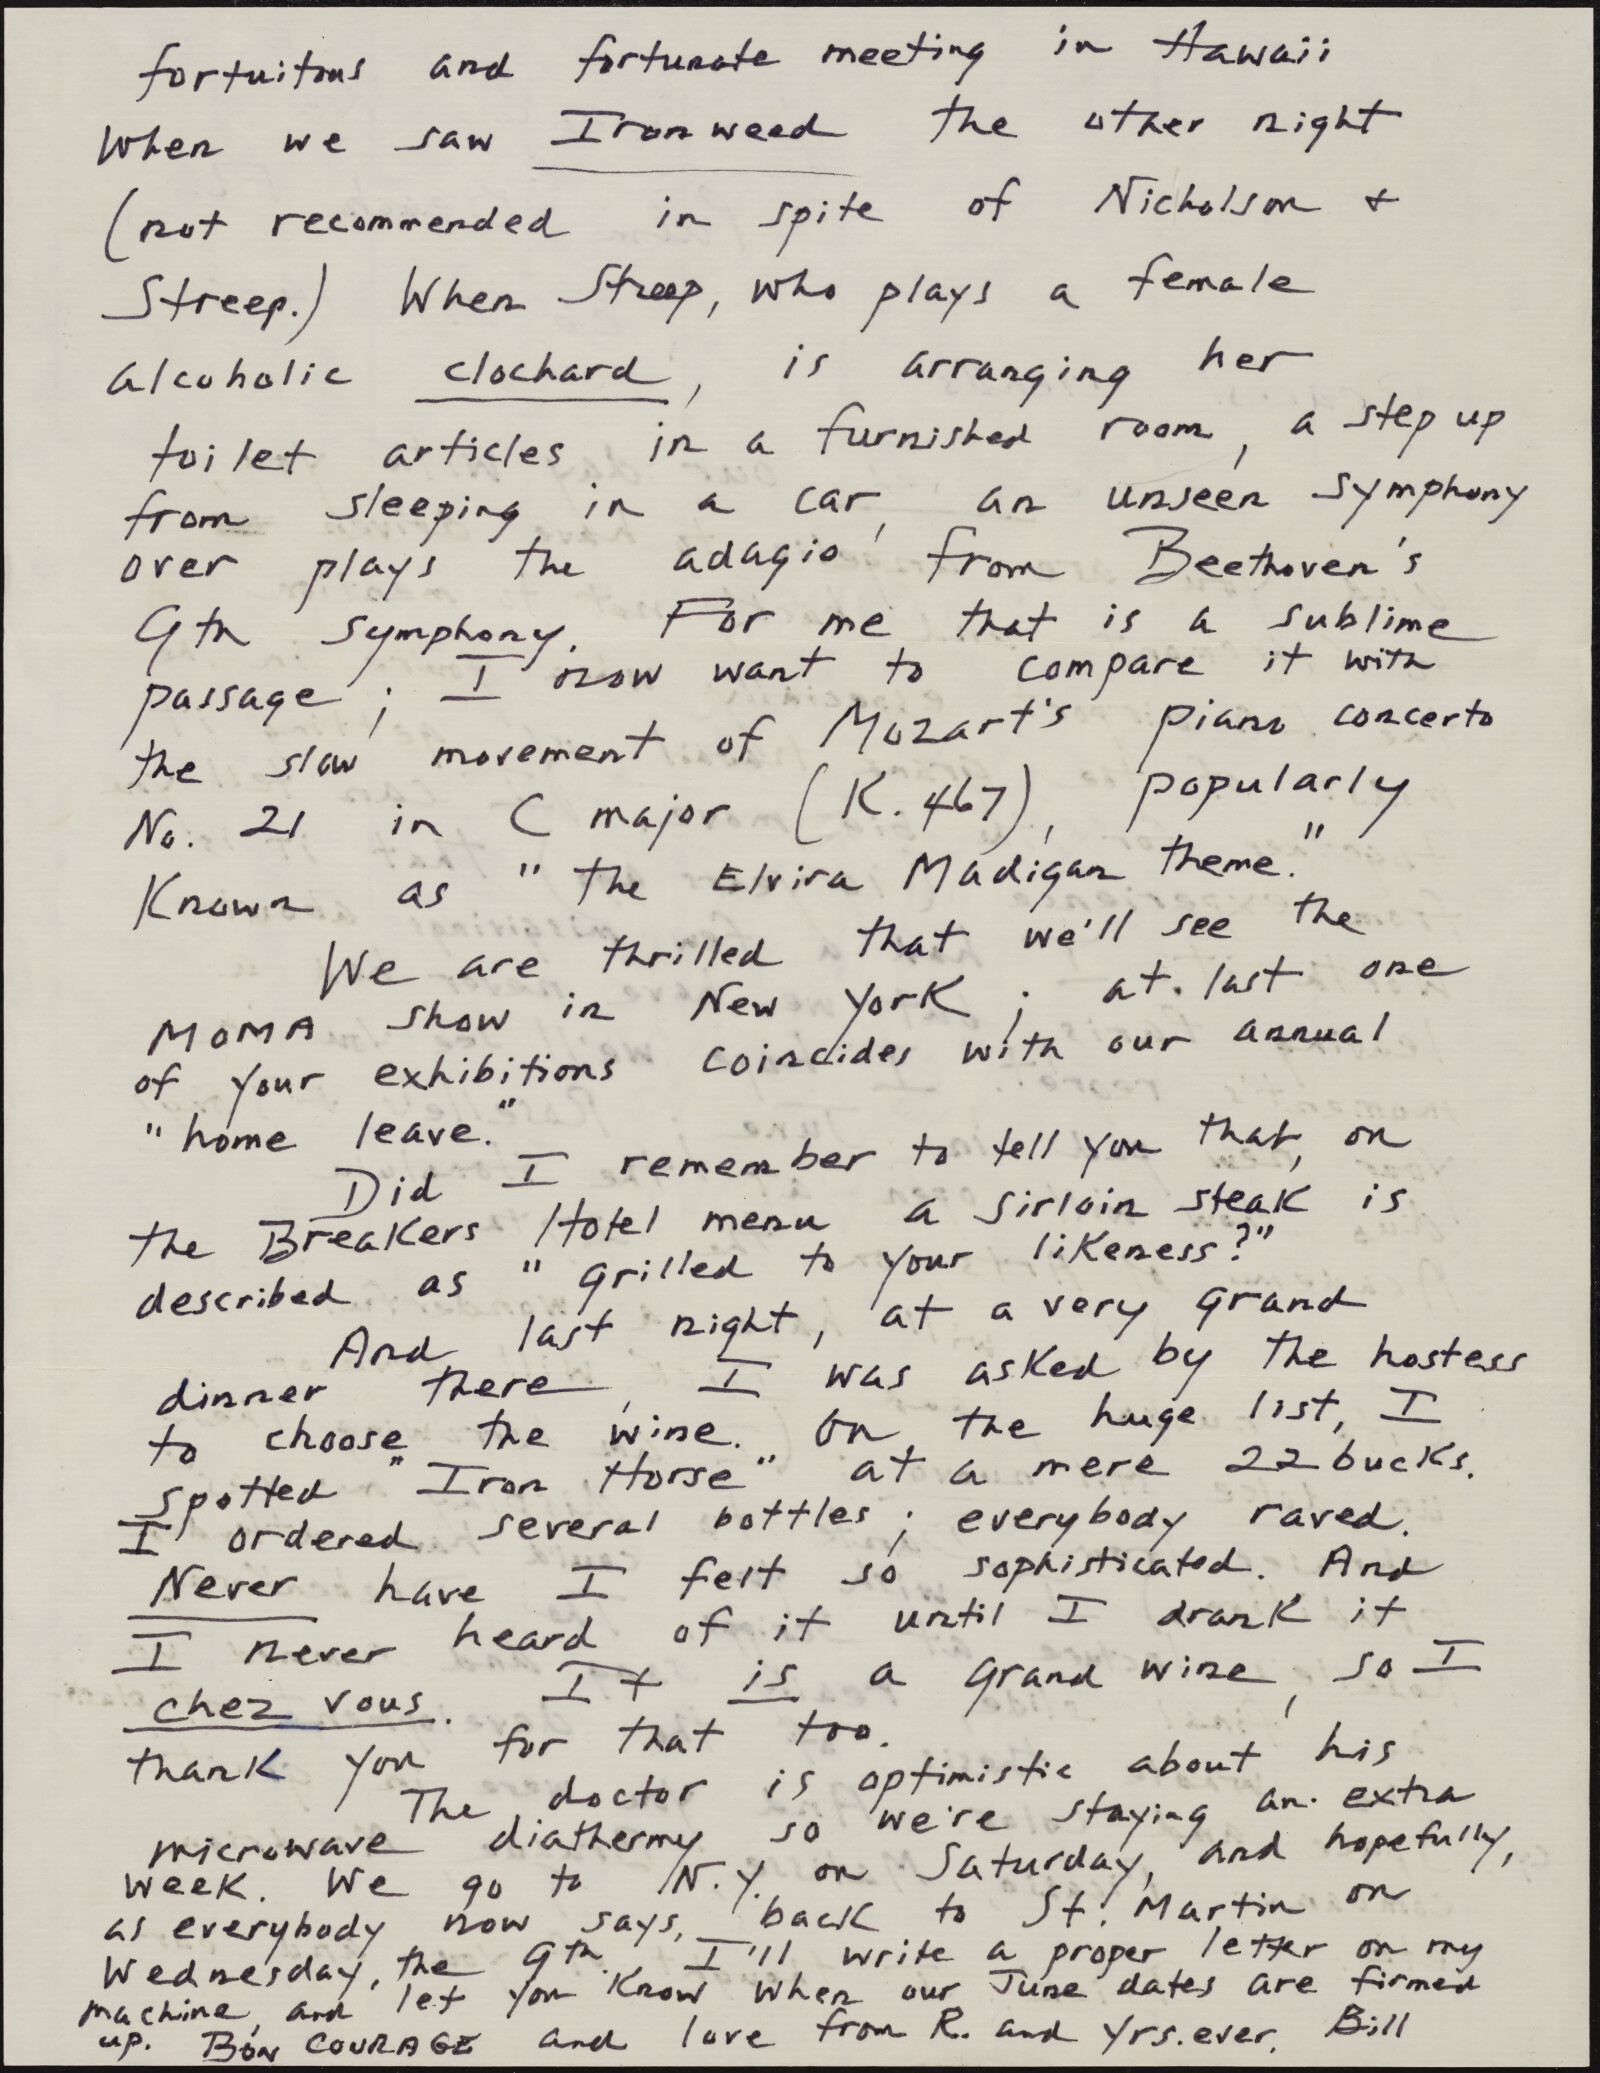 fortuitous and fortunate meeting in Hawaii
When we saw Ironweed the other night
(not recommended in spite of Nicholson +
Streep.) When Streep, who plays a female
alcoholic clochard, is arranging her
toilet articles in a furnished room, a step up
from sleeping in a car, an unseen symphony
over plays the adagio from Beethoven's
9th symphony. For me that is a sublime
passage; I now want to compare it with
the slow movement of Mozart's piano concerto
No. 21 in C major (K. 467), popularly
Known as "the Elvira Madigan theme."
We are thrilled that we'll see the
MOMA show in New York; at last one
of your exhibitions coincides with our annual
"home leave."
Did I remember to tell you that, on
the Breakers Hotel menu a sirloin steak is
described as "grilled to your likeness?"
And last night, at a very grand
dinner there, I was asked by the hostess
to choose the wine. On the huge list, I
spotted "Iron Horse" at a mere 22 bucks.
I ordered several bottles; everybody raved.
Never have I felt so sophisticated. And
I never heard of it until I drank it
chez vous. It is a grand wine, so I
thank you for that too.
The doctor is optimistic about his
microwave diathermy so we're staying an extra
week. We go to N.Y. on Saturday, and hopefully,
as everybody now says, back to St. Martin on
Wednesday, the 9th. I'll write a proper letter on my
machine, and let you know when our June dates are firmed
up. BON COURAGE and love from R. and yrs. ever, Bill